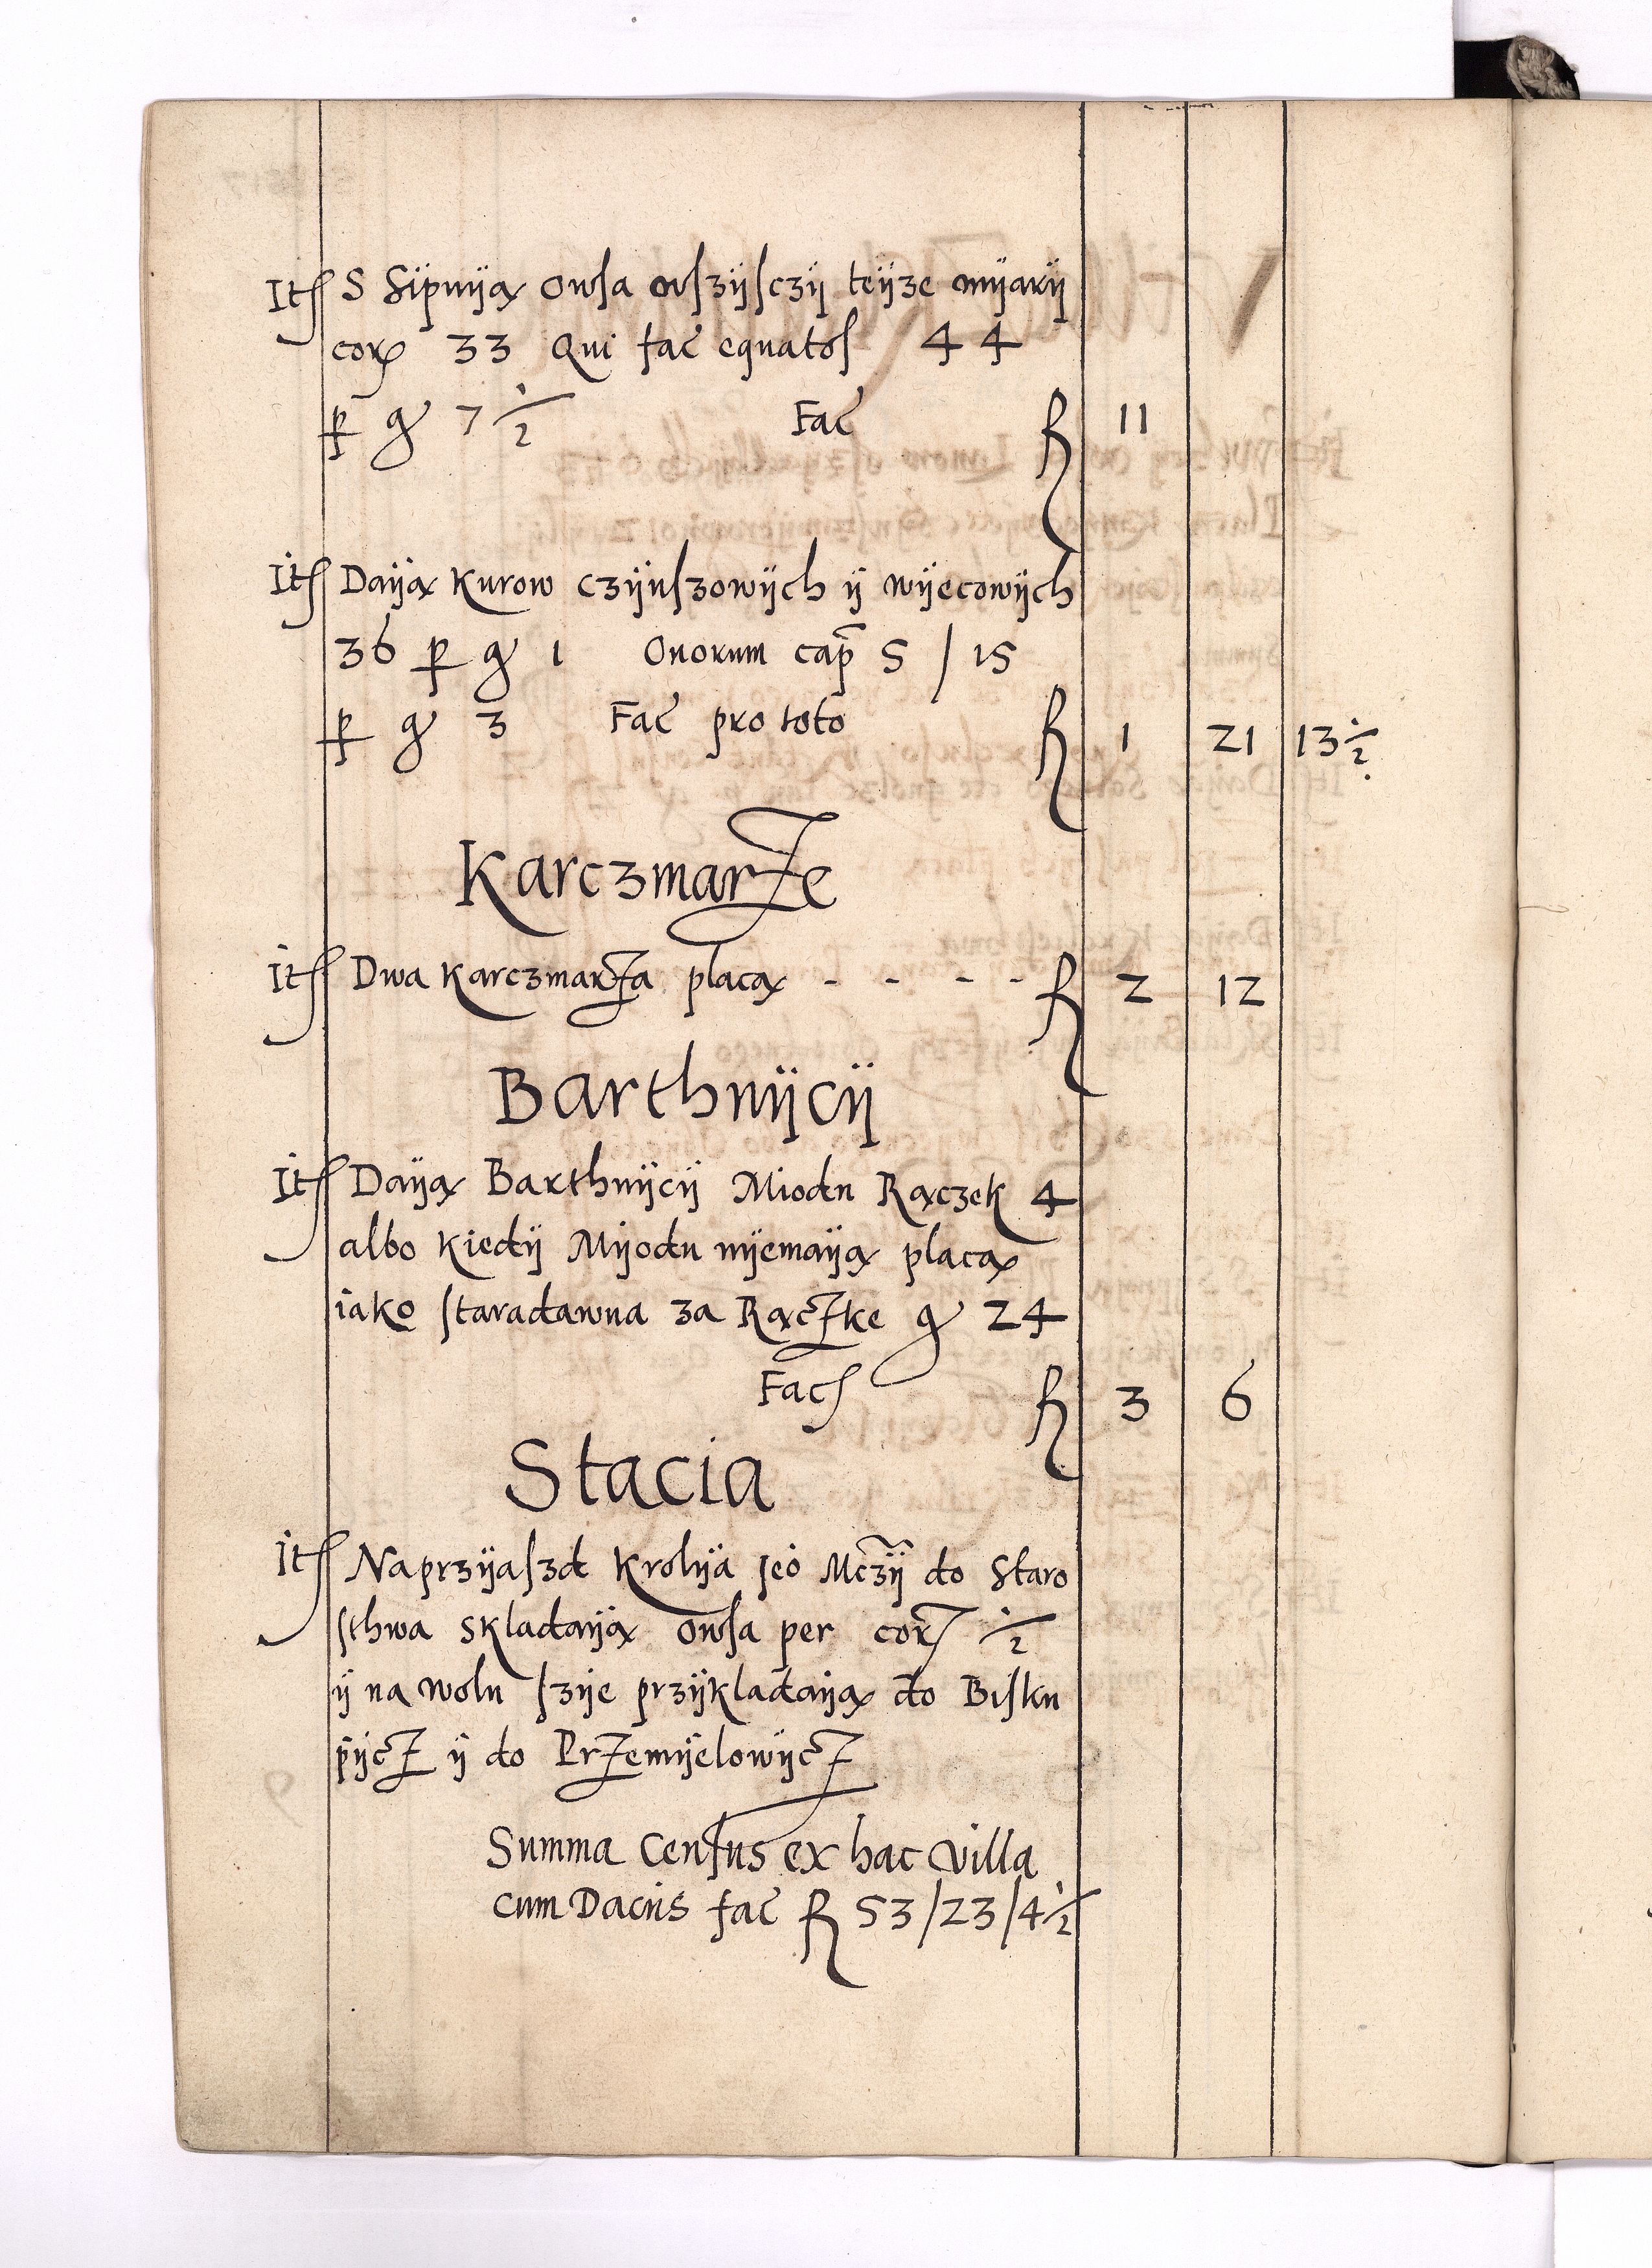 Itſ S Sÿpnÿą Owſa wſzÿſczÿ teÿze mÿarÿ
corꝫ 33 Qui fac̃ equatoſ 44
ꝑ gͬ 7 1/2 Fac̃ ƒ 11
Itſ Daÿą Kurow czÿnſzowÿch ÿ wÿecowÿch
36 ꝑ gͬ 1 Ouorum cap̃ 5 / 15
ꝑ gͬ 3 Fac̃ pro toto ƒ 1 21 13 1/2
Karczmarze
Itſ Dwa Karczmarza placą - - - - ƒ 2 12
Barthnÿcÿ
Itſ Daÿą Barthnÿcÿ Miodu Rączek 4
albo kiedÿ Mÿodu nÿemaÿą placą
iako ſtaradawna za Rączke gͬ 24
Facſ ƒ 3 6
Stacia
Itſ Naprzÿaſzd Krolÿa Jeo Mczÿ do Staro
ſthwa skladaÿą Owſa per cor 1/2
ÿ na wolu ſzÿe przÿkladaÿą do Biſku
pÿcz ÿ do Przemÿelowÿcz
Summa Cenſus ex hac villa
cum Daciis fac̃ ƒ 53/23/4 1/2